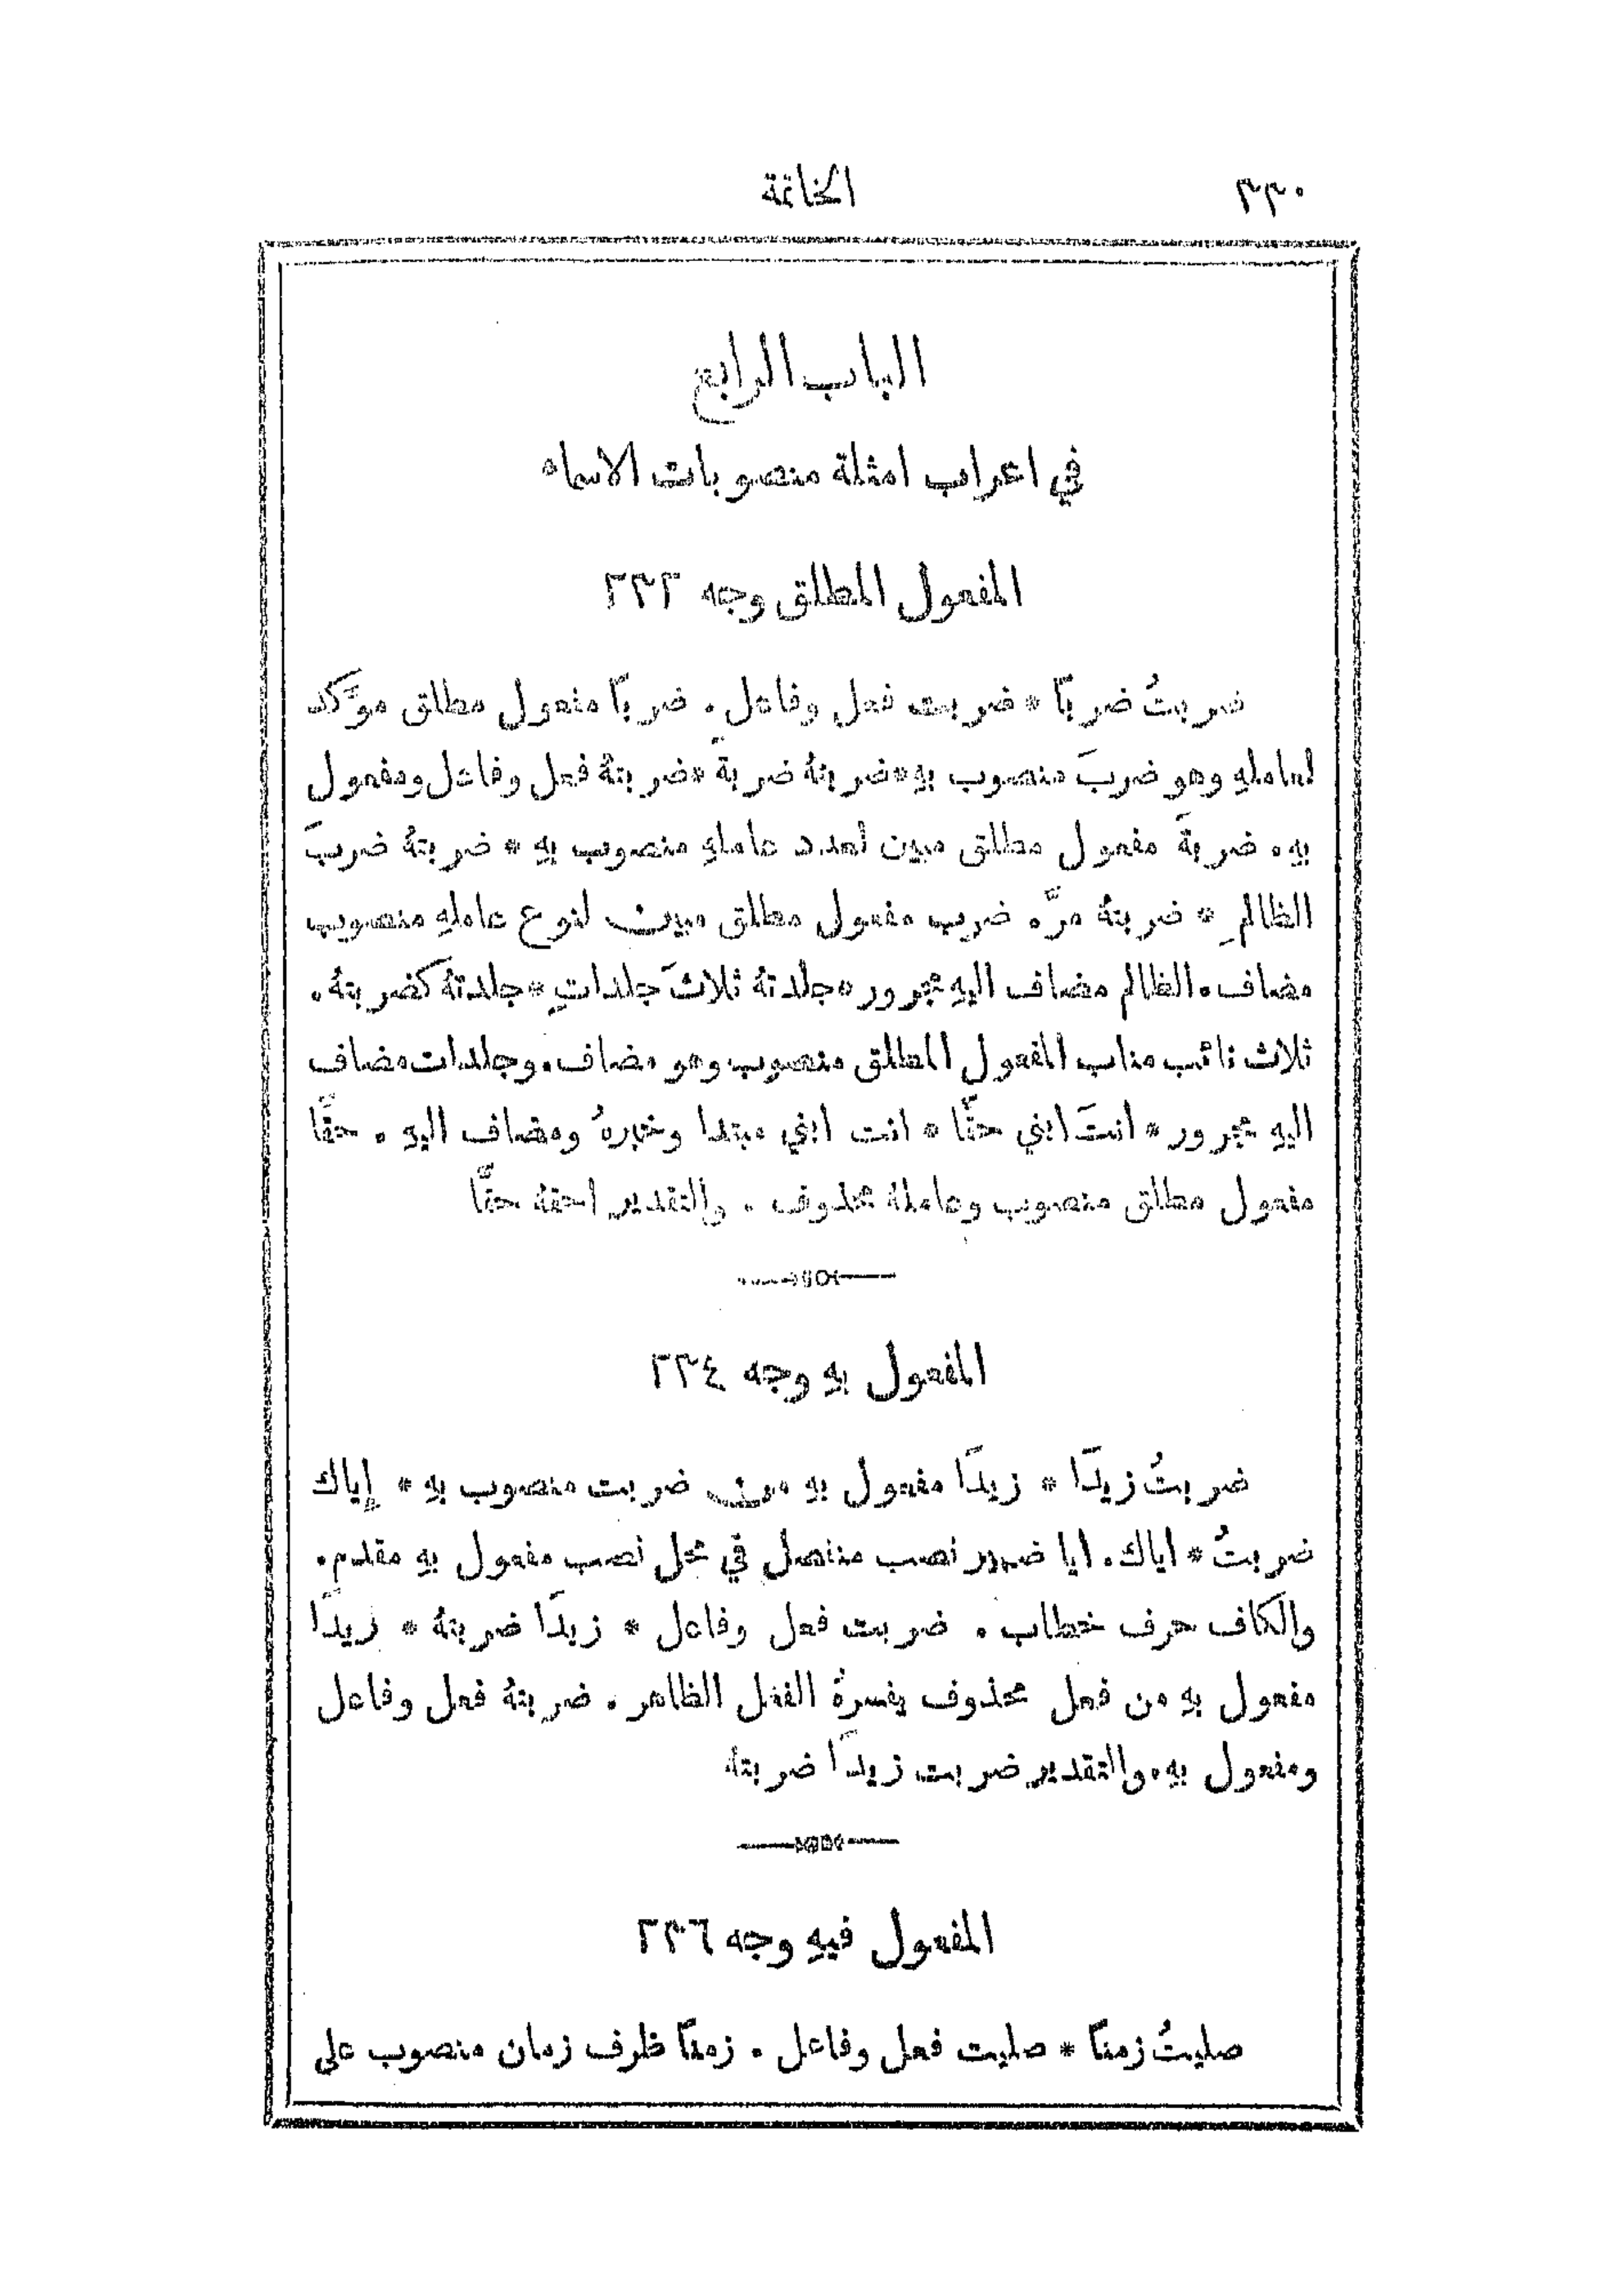 ٣٣٠ الخاتمة
الباب الرابع
في اعراب امثلة منصوبات الاسماء
المفعول المطلق وجه ٢٣٢
ضربتُ ضربًا * ضربت فعل وفاعل. ضربًا مفعول مطلق مؤَكد
لعاملهِ وهو ضربَ منصوب بهِ * ضربتهُ ضربةً * ضربتهُ فعل وفاعل ومفعول
بهِ. ضربةً مفعول مطلق مبين لعدد عاملهِ منصوب بهِ * ضربتهُ ضربَ
الظالمِ * ضربتهُ مرَّ. ضرب مفعول مطلق مبين لنوع عاملهِ منصوب
مضاف. الظالم مضاف اليهِ مجرور * جلدتهُ ثلاثَ جلداتٍ * جلدتهُ كضربتهُ.
ثلاث نائب مناب المفعول المطلق منصوب وهو مضاف. وجلدات مضاف
اليهِ مجرور * انتَ ابني حقًّا * انت ابني مبتدا وخبرهُ ومضاف اليهِ. حقًّا
مفعول مطلق منصوب وعاملهُ محذوف. والتقدير احقهُ حقًّا
المفعول بهِ وجه ٢٣٤
ضربتُ زيدًا * زيدًا مفعول بهِ من ضربت منصوب بهِ * إياك
ضربتُ * اياك. ايا ضمير نصب منفصل في محل نصب مفعول بهِ مقدم.
والكاف حرف خطاب. ضربت فعل وفاعل * زيدًا ضربتهُ * زيدًا
مفعول بهِ من فعل محذوف يفسرهُ الفعل الظاهر. ضربتهُ فعل وفاعل
ومفعول بهِ. والتقدير ضربت زيدًا ضربتهُ
المفعول فيهِ وجه ٢٣٦
صليتُ زمنًا * صليت فعل وفاعل. زمنًا ظرف زمان منصوب على